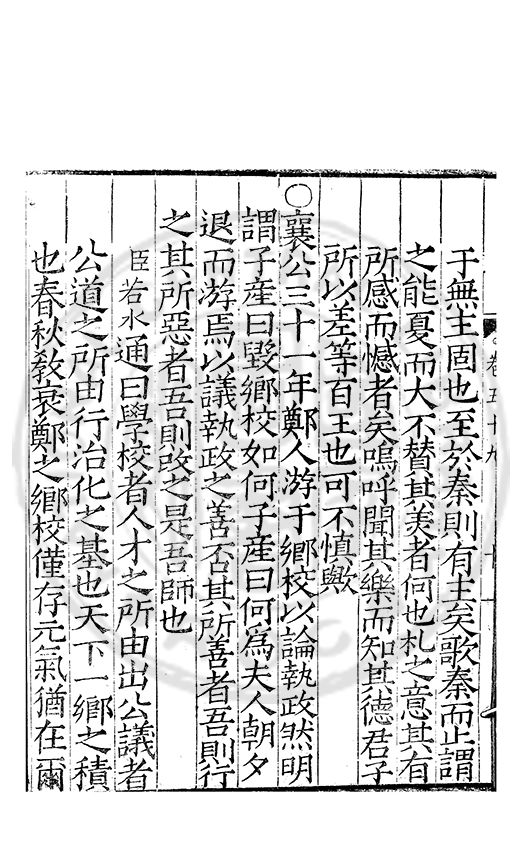 卷五十九
于無主固也至於秦則有主矣歌秦而止謂
之能夏而大不替其美者何也札之意其有
所感而憾者矣嗚呼聞其樂而知其德君子
所以差等百王也可不慎歟
○襄公三十一年鄭人游于鄉校以論執政然明
謂子產曰毀鄉校如何子產曰何為夫人朝夕
退而游焉以議執政之善否其所善者吾則行
之其所惡者吾則改之是吾師也
臣若水通曰學校者人才之所由出公議者
公道之所由行治化之基也天下一鄉之積
也春秋教衰鄭之鄉校僅存元氣猶在爾